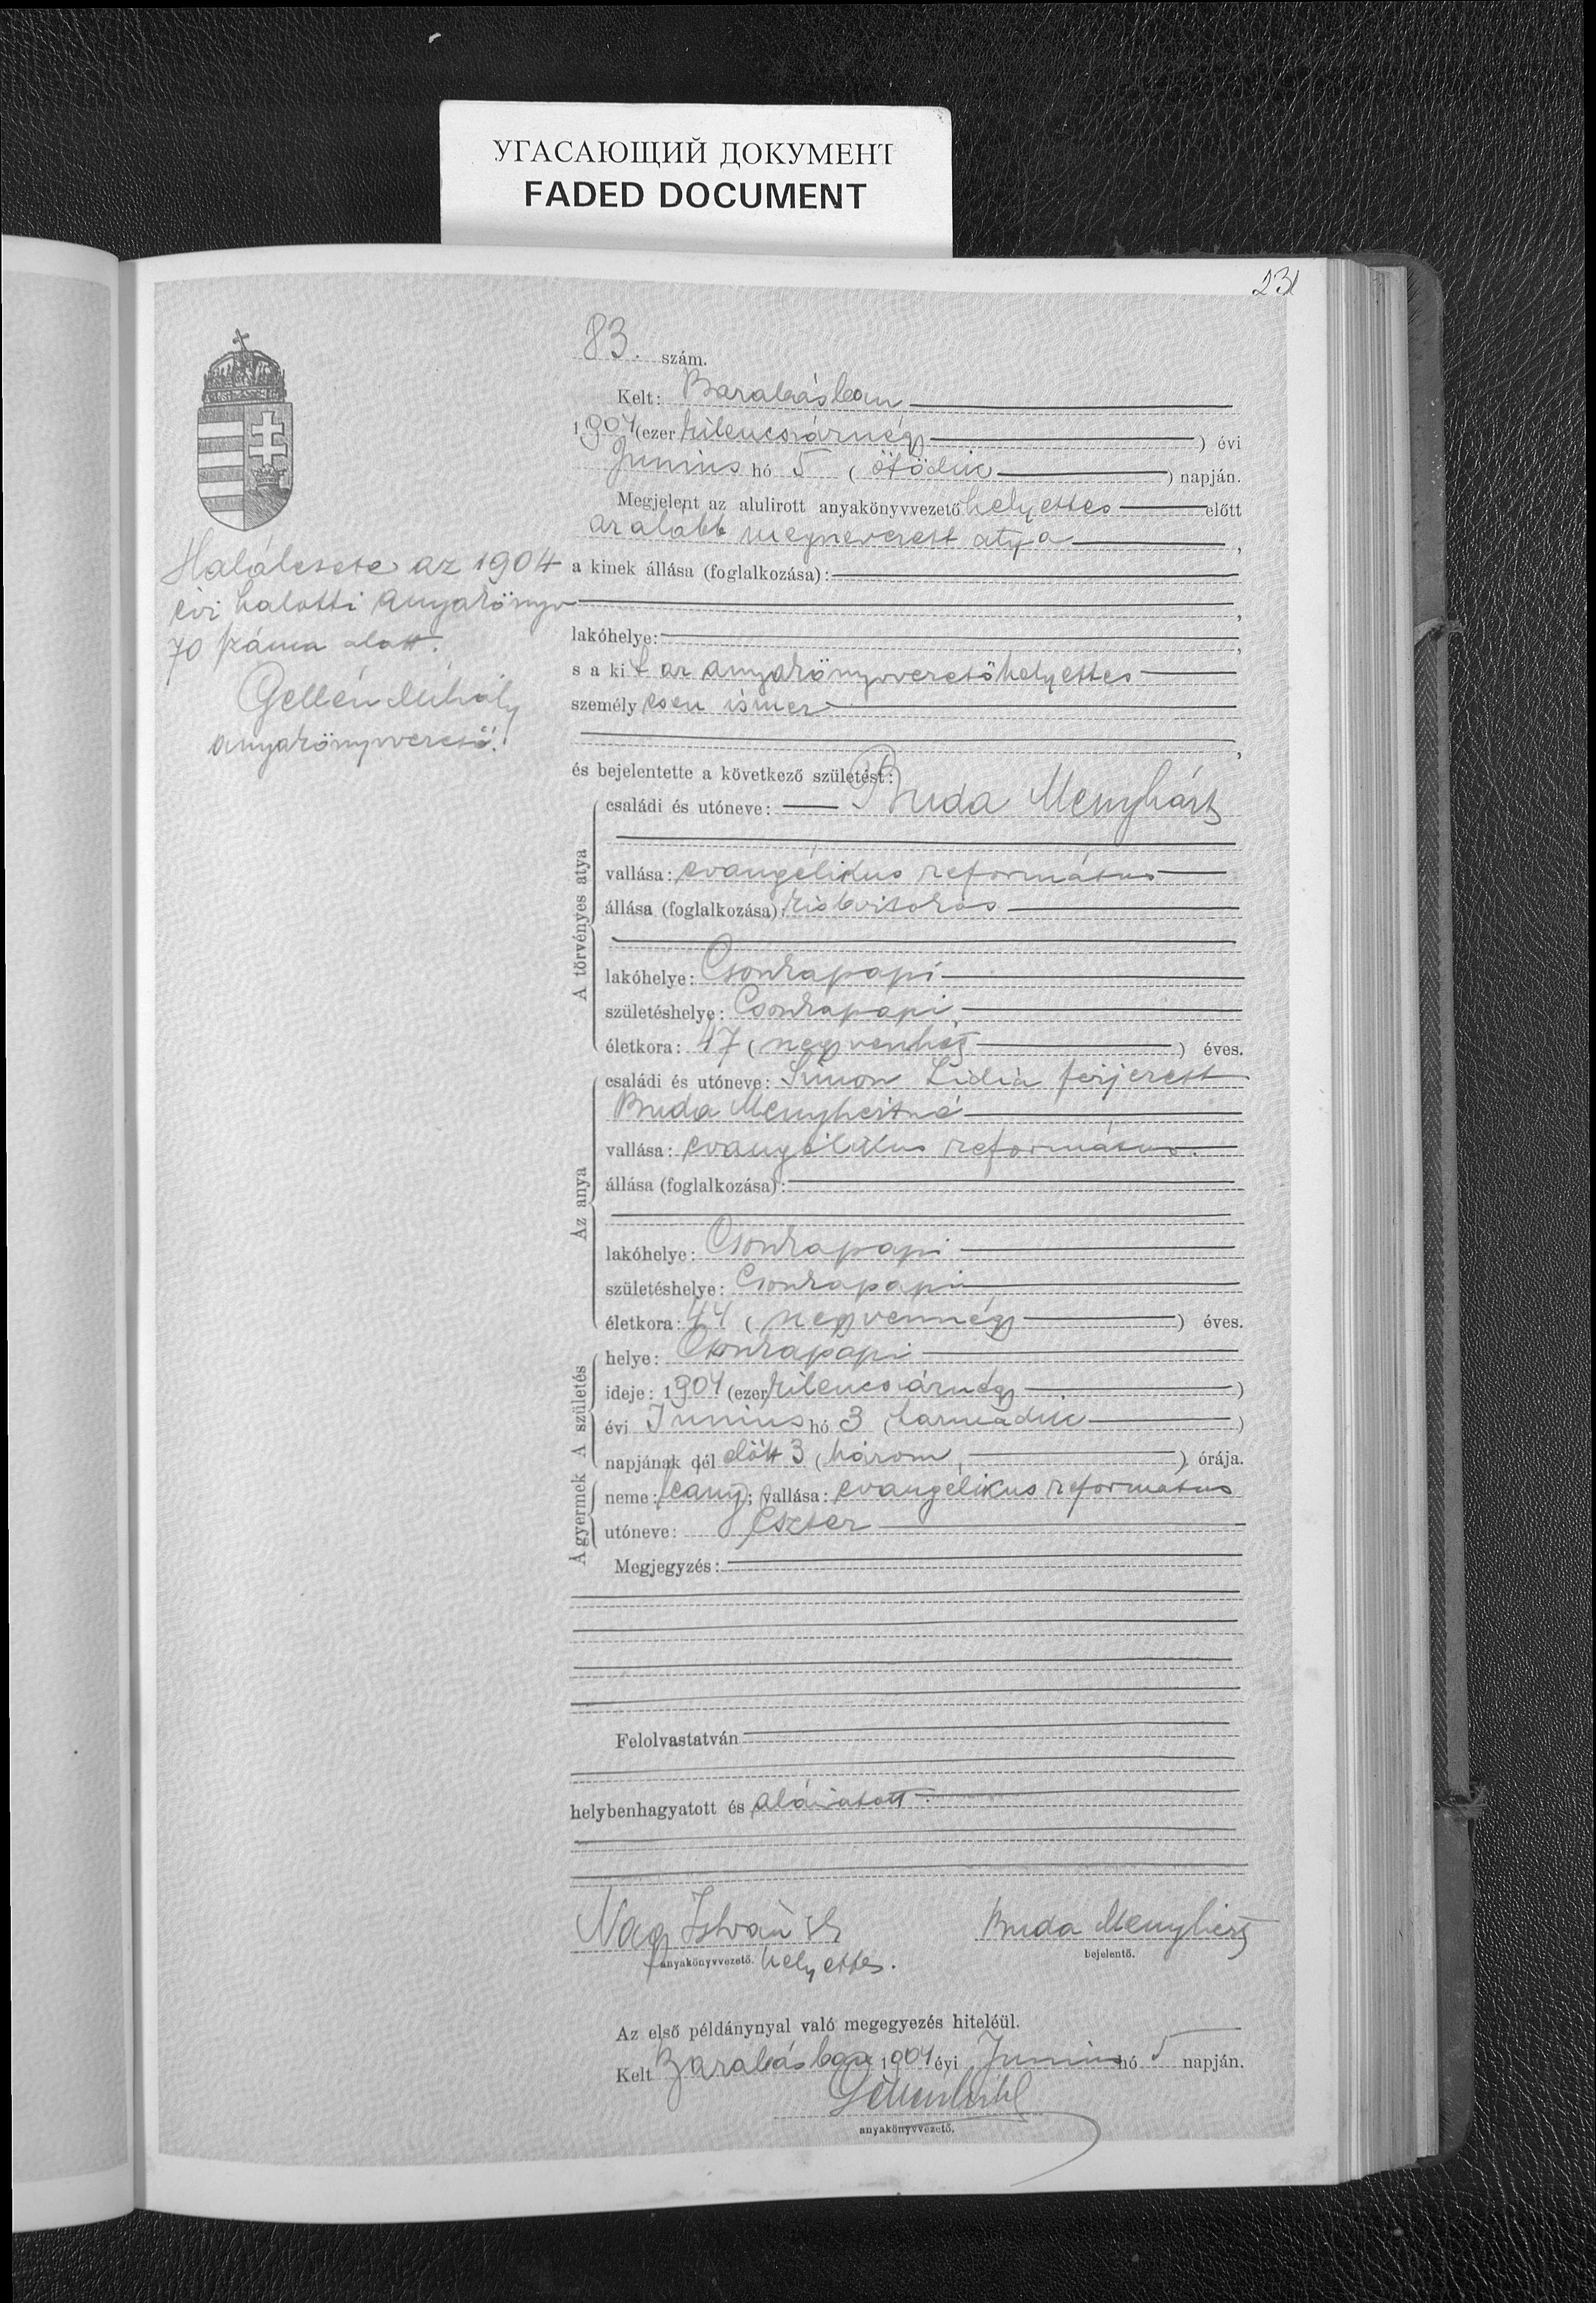 УГАСАЮЩИЙ ДОКУМЕНТ
FADED DOCUMENT
231
83. szám.
Kelt: Barabásban
1904 (ezer kilencszáznégy) évi
Junius hó 5 (ötödik) napján.
Megjelent az alulirott anyakönyvvezető helyettes előtt
az alább megnevezett atya,
a kinek állása (foglalkozása):
lakóhelye:
s a kit az anyakönyvvezetőhelyettes
személyesen ismer
és bejelentette a következő születést:
A törvényes atya
családi és utóneve: Buda Menyhárt
vallása: evangélikus református
állása (foglalkozása): kisbirtokos
lakóhelye: Csonkapapi
születéshelye: Csonkapapi
életkora: 47 (negyvenhét) éves.
Az anya
családi és utóneve: Simon Lidia férjezett
Buda Menyhértné
vallása: evangélikus református.
állása (foglalkozása):
lakóhelye: Csonkapapi
születéshelye: Csonkapapi
életkora: 44 (negyvennégy) éves.
A születés
helye: Csonkapapi
ideje: 1904 (ezer kilencszáznégy)
évi Junius hó 3 (harmadik)
napjának dél előtt 3 (három) órája.
A gyermek
neme: leány; vallása: evangélikus református
utóneve: Eszter
Megjegyzés:
Felolvastatván
helybenhagyatott és aláiratott.
Nagy István
anyakönyvvezető. helyettes.
Buda Menyhért
bejelentő.
Az első példánynyal való megegyezés hiteléül.
Kelt Barabásban 1904 évi Junius hó 5 napján.
anyakönyvvezető.
Halálesete az 1904
évi halotti anyakönyv
70 száma alatt.
Gellén Mihály
anyakönyvvezető.